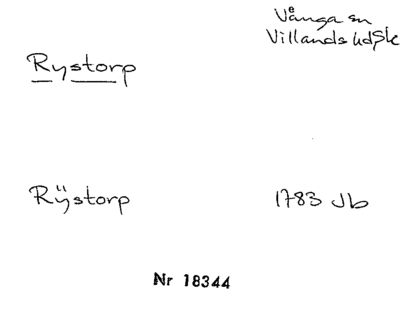 Vånga sn
Villands hd Sk
Rystorp
Rÿstorp
1783 Jb
Nr 18344